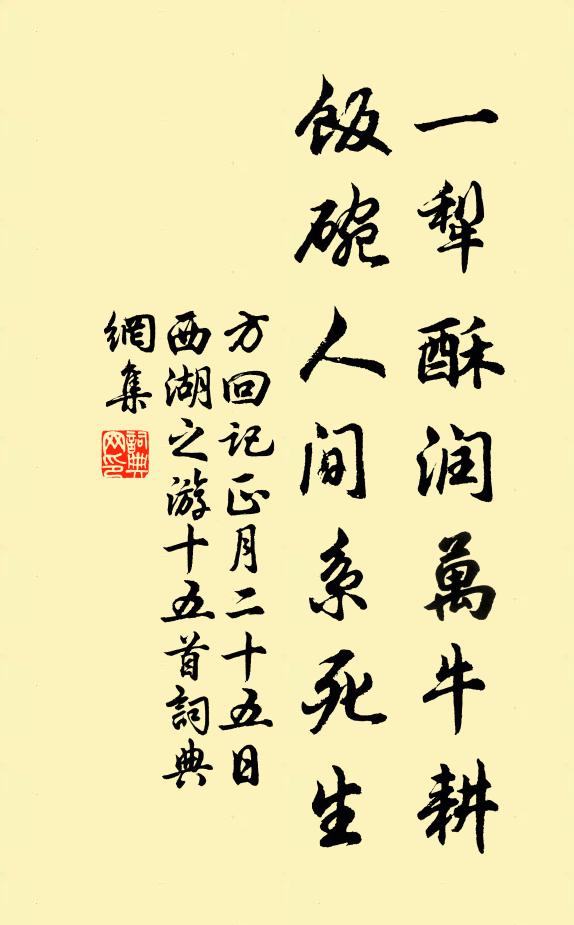 一犁酥润萬牛耕
飯碗人间系死生
方回记正月二十五日
西湖之游十五首詞典
網集
詞典
网印